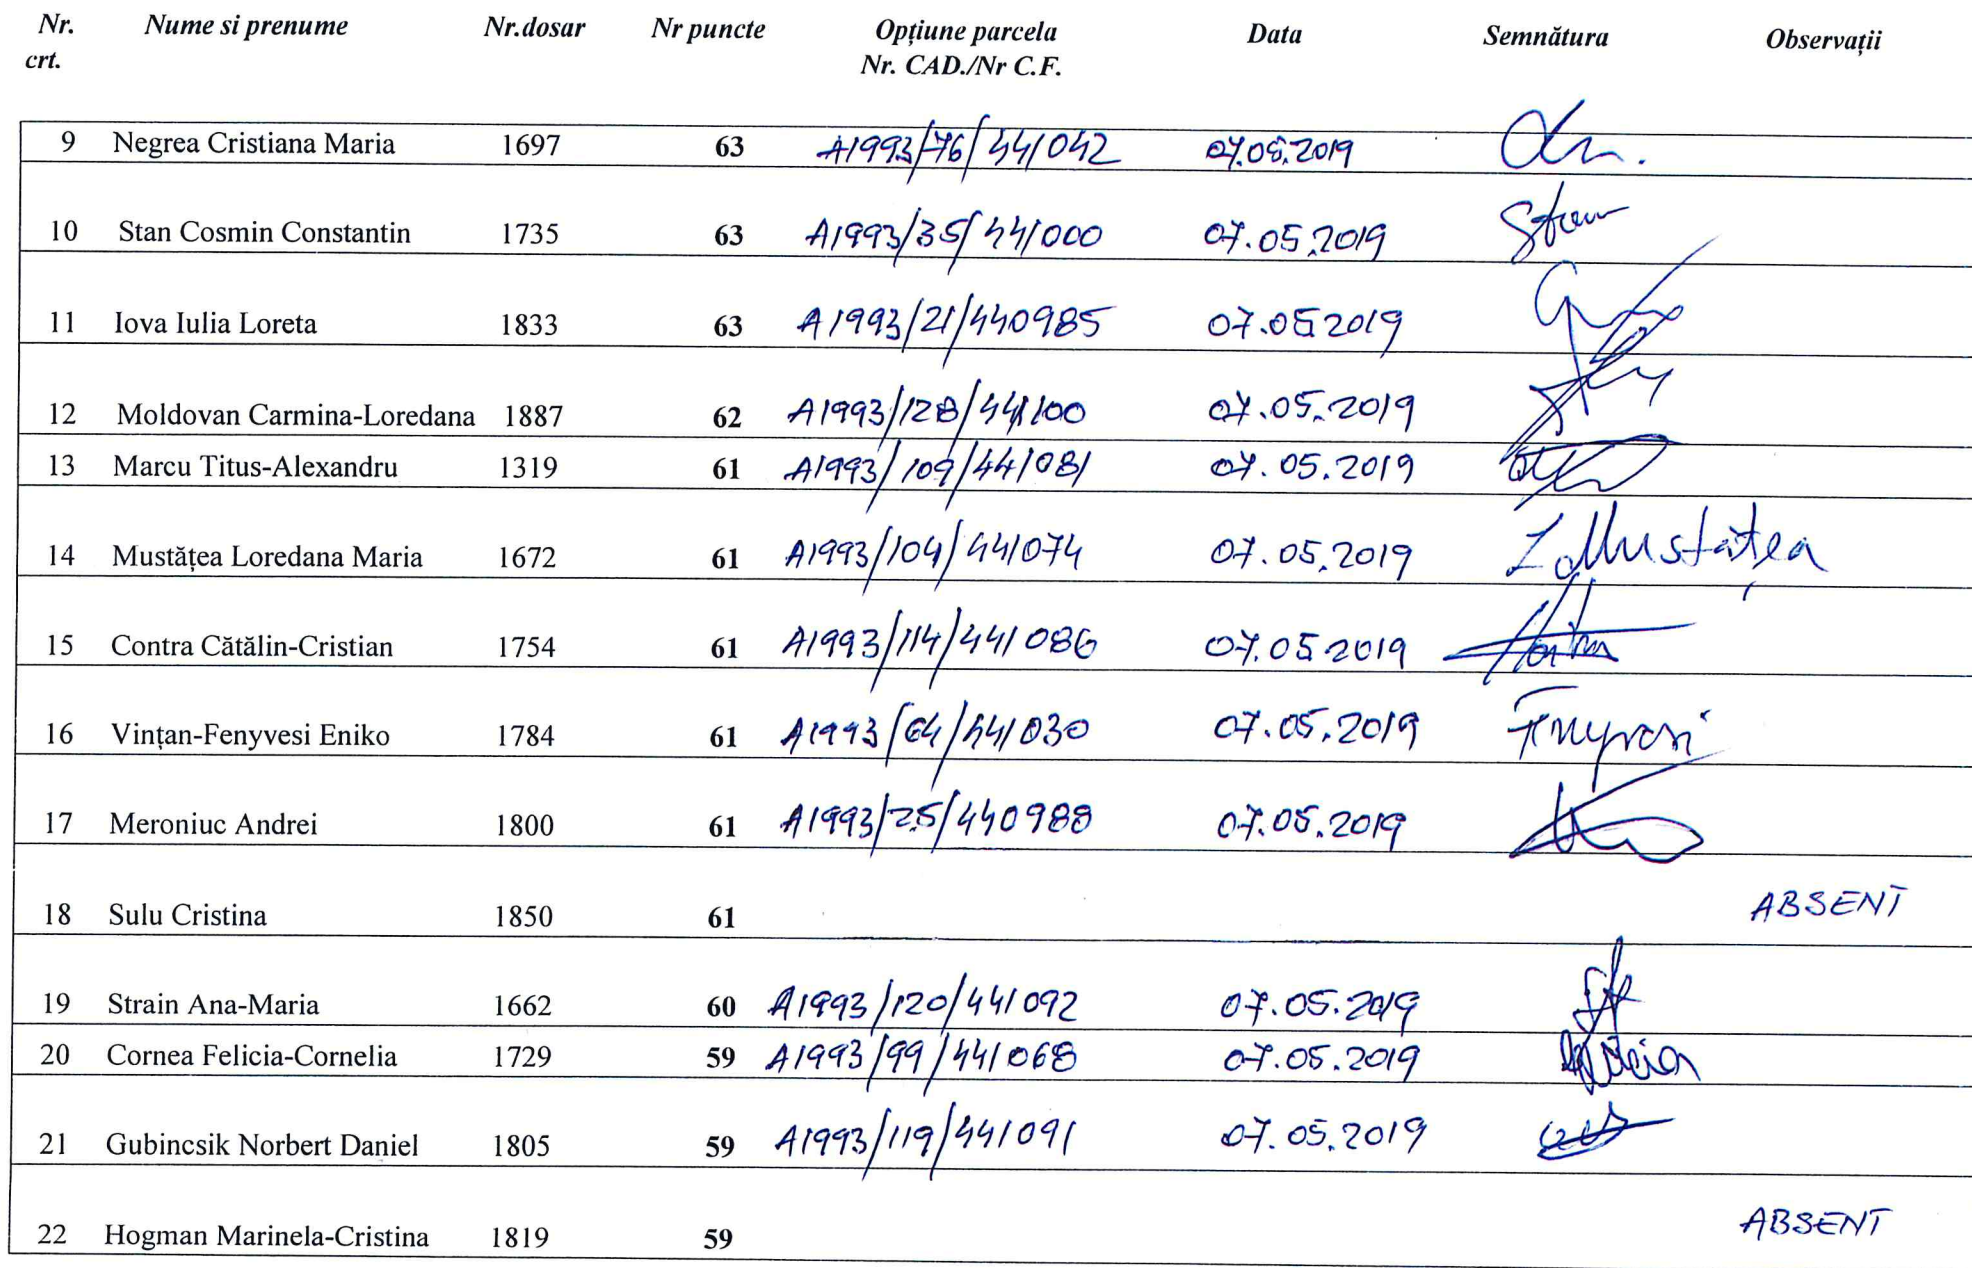 Nr. crt. Nume si prenume Nr.dosar Nr puncte Opțiune parcela Nr. CAD./Nr C.F. Data Semnătura Observații
9 Negrea Cristiana Maria 1697 63 A1993/76/441042 07.05.2019
10 Stan Cosmin Constantin 1735 63 A1993/35/441000 07.05.2019 Stan
11 Iova Iulia Loreta 1833 63 A1993/21/440985 07.05 2019
12 Moldovan Carmina-Loredana 1887 62 A1993/128/441100 07.05.2019
13 Marcu Titus-Alexandru 1319 61 A1993/109/441081 07.05.2019
14 Mustățea Loredana Maria 1672 61 A1993/104/441074 07.05.2019 L Mustățea
15 Contra Cătălin-Cristian 1754 61 A1993/114/441086 07.05 2019
16 Vințan-Fenyvesi Eniko 1784 61 A1993/64/441030 07.05.2019
17 Meroniuc Andrei 1800 61 A1993/25/440988 07.05.2019
18 Sulu Cristina 1850 61 ABSENT
19 Strain Ana-Maria 1662 60 A1993/120/441092 07.05.2019
20 Cornea Felicia-Cornelia 1729 59 A1993/99/441068 07.05.2019
21 Gubincsik Norbert Daniel 1805 59 A1993/119/441091 07.05.2019
22 Hogman Marinela-Cristina 1819 59 ABSENT